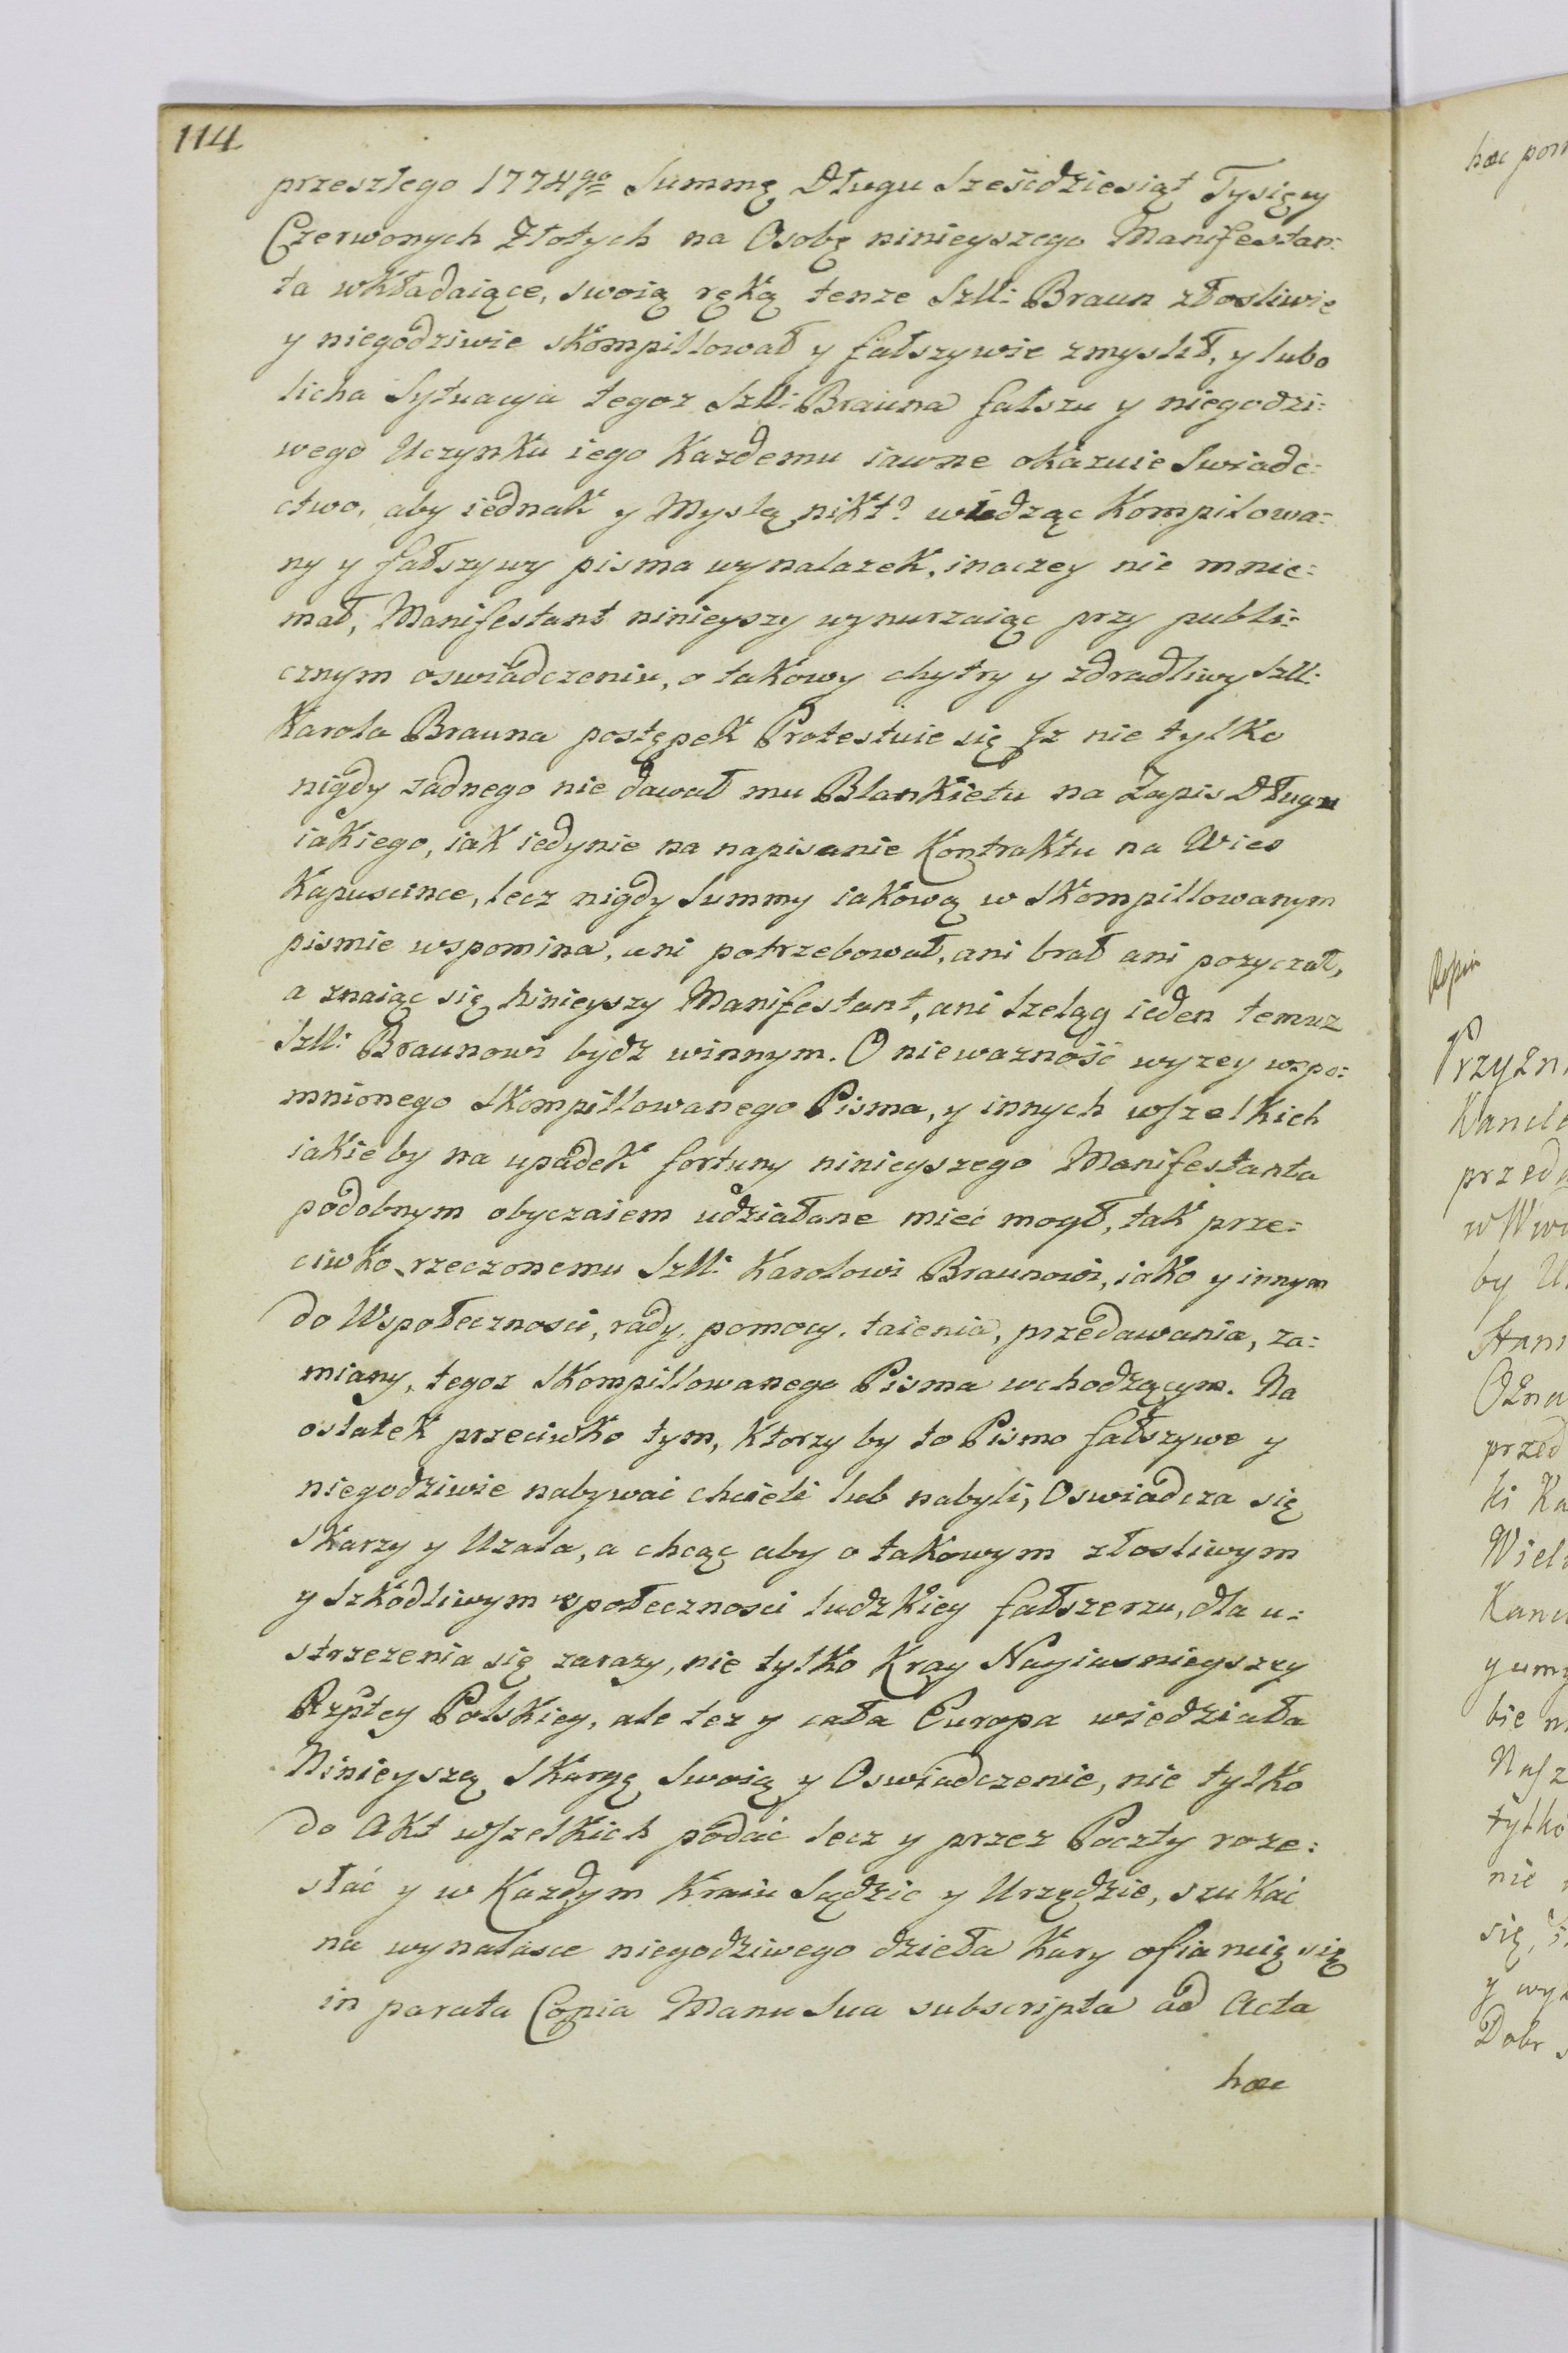 114
przeszlego 1774go Summę Długu Sześcdziesiąt Tysięcy
Czerwonych Złotych na Osobę ninieyszego Manifestan:
ta wkładaiące, swoią ręką tenze Szll: Braun złosliwie
y niegodziwie skompillował y fałszywie zmyslił, y lubo
licha Sytuacya tegoz Szll: Brauna fałszu y niegodzi:
wego Uczynku iego Kazdemu iawne okazuie Swiade:
ctwo, aby iednak y Myslą nikt widząc Kompilowa:
ny y fałszywy pisma wynalazek, inaczey nie mnie:
mał, Manifestant ninieyszy wynurzaiąc przy publi:
cznym oswiadczeniu, o takowy chytry y zdradliwy Szll:
Karola Brauna postępek Protestuie się Iz nie tylko
nigdy zadnego nie dawał mu Blankietu na Zapis Długu
iakiego, iak iedynie na napisanie Kontraktu na Wies
Kapuscince, lecz nigdy Summy iakową w Skompillowanym
pismie wspomina, ani potrzebował, ani brał ani pozyczał,
a znaiąc się ninieyszy Manifestant, ani Szeląg ieden temuz
Szll: Braunowi bydz winnym. O niewaznośc wyzey wspo:
mnionego Skompillowanego Pisma, y innych wszelkich
iakieby na upadek fortuny ninieyszego Manifestanta
podobnym obyczaiem udziałane mieć mogł, tak prze:
ciwko rzeczonemu Szll: Karolowi Braunowi, iako y innym
do Wspołecznosci, rady, pomocy, taienia, przedawania, za:
miany, tegoz Skompillowanego Pisma wchodzącym. Na
ostatek przeciwko tym, Ktorzy by to Pismo fałszywe y
niegodziwie nabywać chcieli lub nabyli, Oswiadcza się
Skarzy y Uzala, a chcąc aby o takowym złosliwym
y Szkodliwym społecznosci ludzkiey fałszerzu, dla u:
strzezenia się zarazy, nie tylko Kray Nayiasnieyszy
Rzptey Polskiey, ale tez y cała Europa wiedziała
Ninieyszą Skargę Swoią y Oswiadczenie, nie tylko
do Akt wszelkich podać lecz y przez Poczty roze:
słać y w Kazdym Kraiu Sądzie y Urzędzie, szukać
na wynalasce niegodziwego dzieła Kary ofiaruię się
in parata Copia Manu Sua subscripta ad Acta
hæc